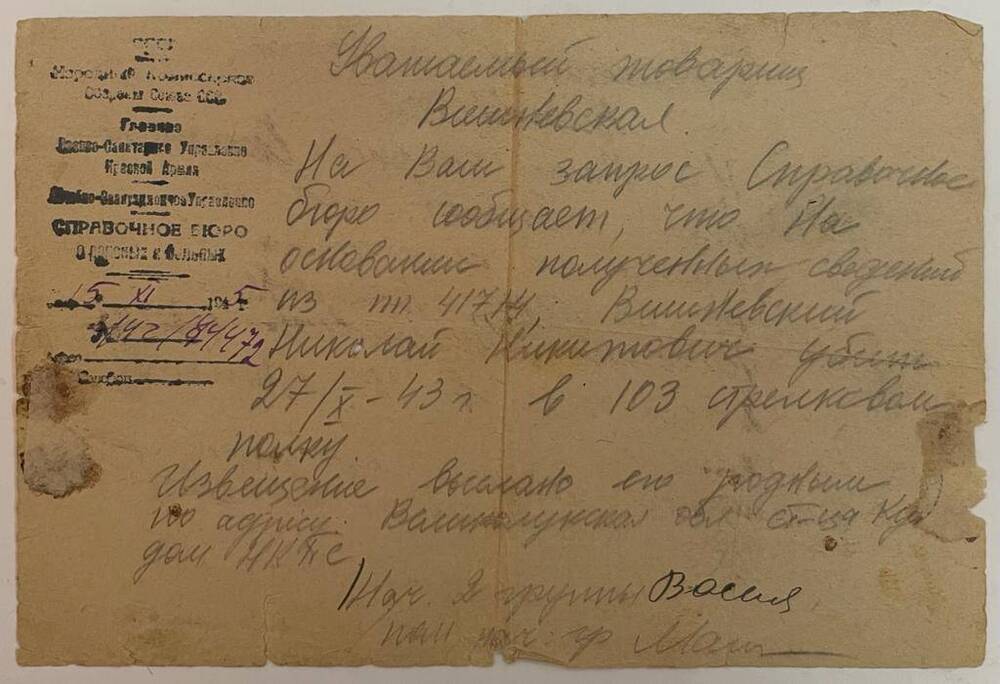 СССР
Народный Комиссариат
Обороны Союза ССР
Главное
Военно-Санитарное Управление
Красной Армии
Лечебно-Эвакуационное Управление
СПРАВОЧНОЕ БЮРО
о раненых и больных
15 XI 1945
Уважаемый товарищ
Вишневская.
На Ваш запрос Справочное
бюро сообщает, что на
основании полученных сведений
из пп 41714, Вишневский
Николай Никитович убит
27/X-43 г. в 103 стрелковом
полку.
Извещение выслано его родным
по адресу. Великолукская обл ст-ца
дом НКПС
Нач. 2 группы
пом нач. гр